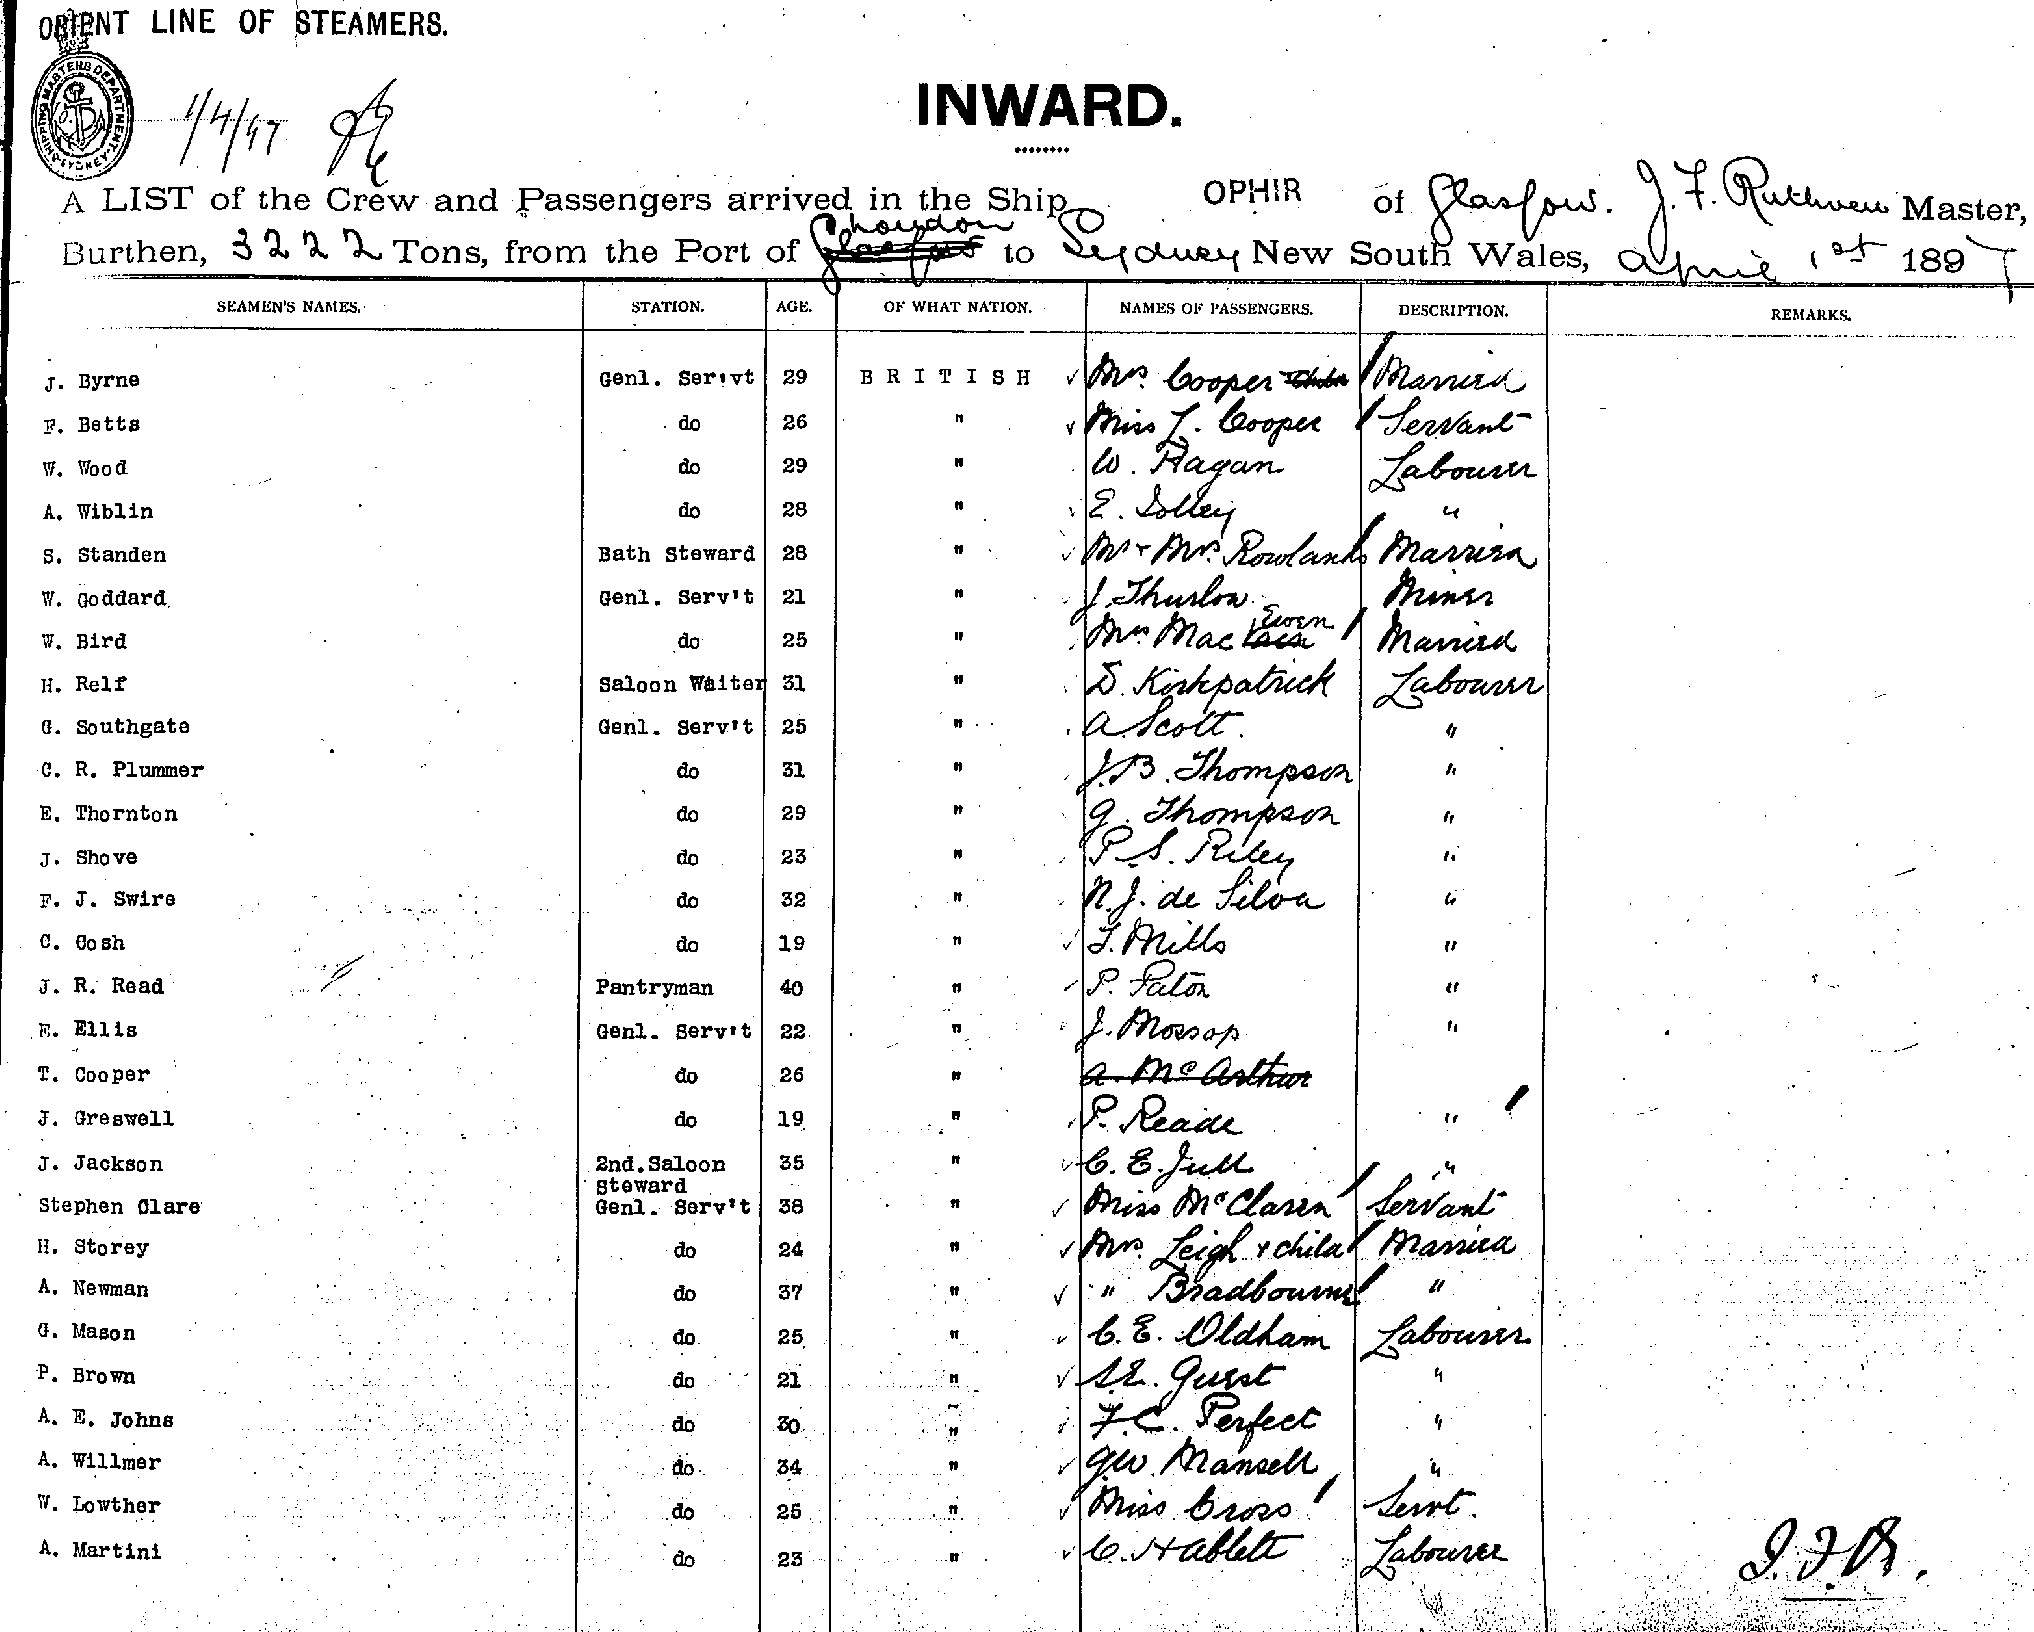 ORIENT LINE OF STEAMERS.
SHIPPING MASTERS DEPARTMENT SYDNEY
1/4/97
INWARD.
A LIST of the Crew and Passengers arrived in the Ship OPHIR of Glasgow. J. F. Ruthven Master,
Burthen, 3222 Tons, from the Port of to Sydney New South Wales, April 1st 1897
SEAMEN'S NAMES. STATION. AGE. OF WHAT NATION. NAMES OF PASSENGERS. DESCRIPTION. REMARKS.
J. Byrne Genl. Serv't 29 BRITISH Mrs. Cooper Married
F. Betts do 26 " Miss L. Cooper Servant
W. Wood do 29 " W. Hagan Labourer
A. Wiblin do 28 " E. Solley "
S. Standen Bath Steward 28 " Mr + Mrs. Rowlands Married
W. Goddard Genl. Serv't 21 " J. Thurlow Miner
W. Bird do 25 " Mrs MacEwen Married
H. Relf Saloon Waiter 31 " D. Kirkpatrick Labourer
G. Southgate Genl. Serv't 25 " A Scott. "
C. R. Plummer do 31 " J. B. Thompson "
E. Thornton do 29 " G. Thompson "
J. Shove do 23 " P. S. Riley "
F. J. Swire do 32 " N. J. de Silva "
C. Gosh do 19 " T. Mills "
J. R. Read Pantryman 40 " P. Paton "
E. Ellis Genl. Serv't 22 " J. Mossop "
T. Cooper do 26 " A. McArthur
J. Greswell do 19 " P. Reade "
J. Jackson 2nd. Saloon steward 35 " C. E. Jull "
Stephen Clare Genl. Serv't 38 " Miss McClaren Servant
H. Storey do 24 " Mrs. Leigh + child Married
A. Newman do 37 " " Bradbourne "
G. Mason do 25 " C. E. Oldham Labourer
P. Brown do 21 " S.E. Guest "
A. E. Johns do 30 " F. C. Perfect "
A. Willmer do 34 " G.W. Mansell "
W. Lowther do 25 " Miss Cross Servt.
A. Martini do 23 " C. Hablett Labourer
J.F.R.